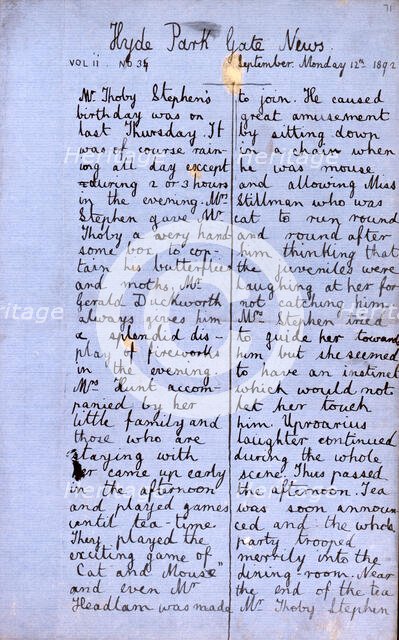 71
Hyde Park Gate News.
VOL II. No 34 September. Monday 12th 1892
Mr Thoby Stephen's
birthday was on
last Thursday. It
was of course rain-
ing all day except
during 2 or 3 hours
in the evening. Mrs
Stephen gave Mr
Thoby a very hand
some box to con-
tain his butterflies
and moths. Mr
Gerald Duckworth
always gives him
a splendid dis-
play of fireworks
in the evening.
Mrs Hunt accom-
panied by her
little family and
those who are
staying with
her came up early
in the afternoon
and played games
until tea-time.
They played the
exciting game of
"Cat and Mouse"
and even Mr
Headlam was made
to join. He caused
great amusement
by sitting down
in chain when
he was mouse
and allowing Miss
Stillman who was
cat to run round
and round after
him thinking that
the juveniles were
laughing at her for
not catching him.
Mrs Stephen tried
to guide her toward
him but she seemed
to have an instinct
which would not
let her touch
him. Uproarius
laughter continued
during the whole
scene. Thus passed
the afternoon. Tea
was soon announ
ced and the whole
party trooped
merrily into the
dining-room. Near
the end of the tea
Mr Thoby Stephen
Heritage
Images